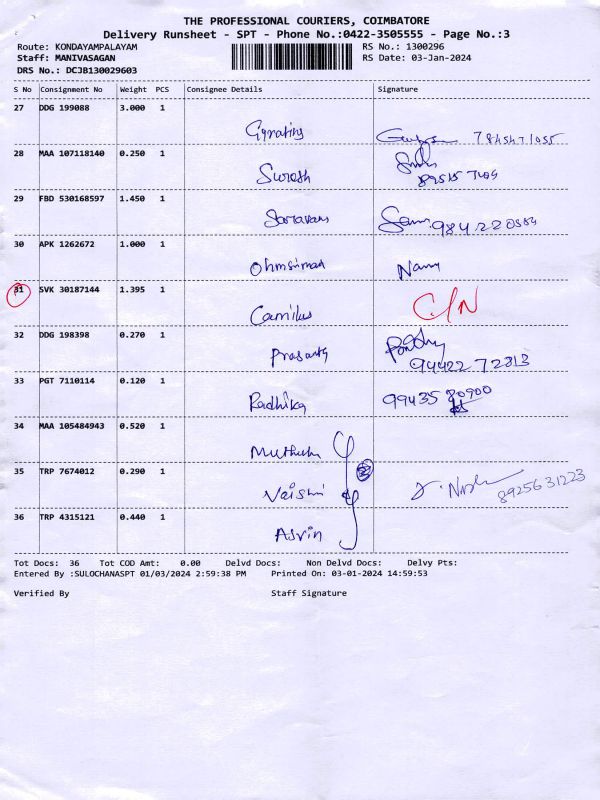 THE PROFESSIONAL COURIERS, COIMBATORE
Delivery Runsheet - SPT - Phone No.:0422-3505555 - Page No.:3
Route: KONDAYAMPALAYAM RS No.: 1300296
Staff: MANIVASAGAN RS Date: 03-Jan-2024
DRS No.: DCJB130029603
S No Consignment No Weight PCS Consignee Details Signature
27 DDG 199088 3.000 1
28 MAA 107118140 0.250 1
Suresh
89515 7409
29 FBD 530168597 1.450 1
Saravan
984 2220584
30 APK 1262672 1.000 1
31 SVK 30187144 1.395 1
C/N
Camilus
32 DDG 198398 0.270 1
Prasanth
94422 72813
33 PGT 7110114 0.120 1
Radhika 99435 80900
34 MAA 105484943 0.520 1
35 TRP 7674012 0.290 1
Naishi 8925631223
36 TRP 4315121 0.440 1
Asvin
Tot Docs: 36 Tot COD Amt: 0.00 Delvd Docs: Non Delvd Docs: Delvy Pts:
Entered By :SULOCHANASPT 01/03/2024 2:59:38 PM Printed On: 03-01-2024 14:59:53
Verified By Staff Signature